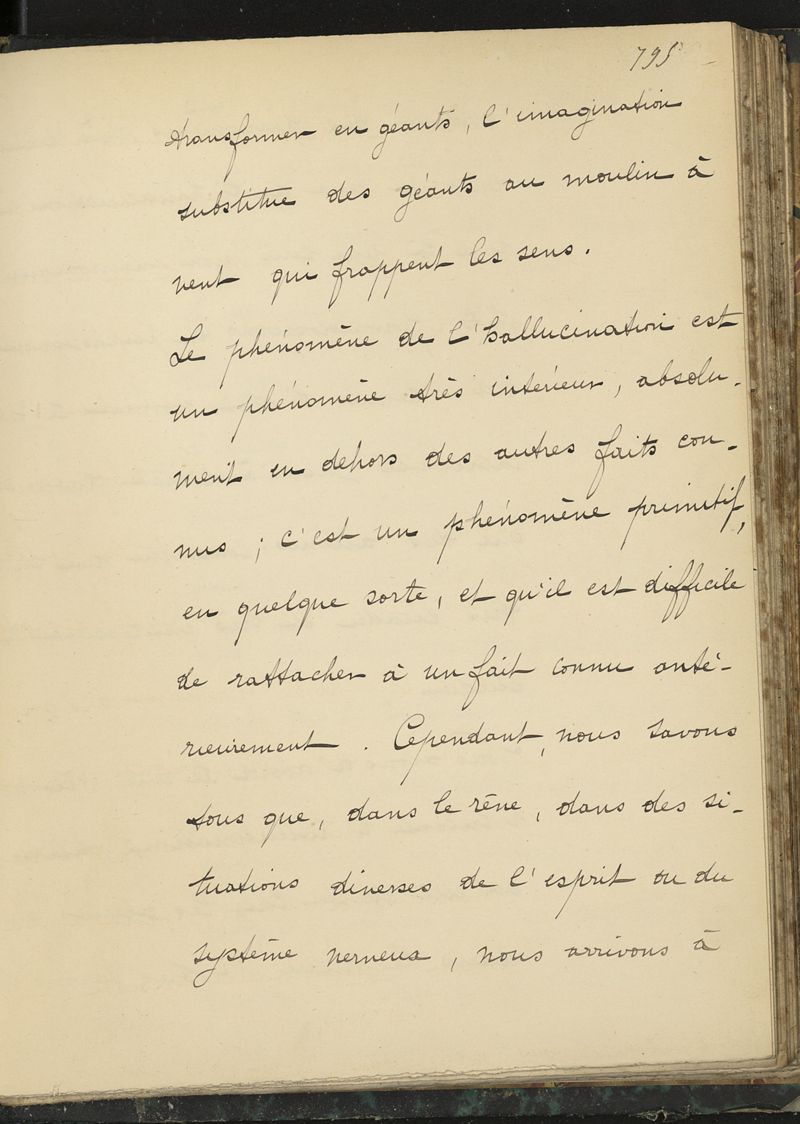 795
transformer en géants, l'imagination
substitue des géants au moulin à
vent qui frappent les sens.
Le phénomène de l'hallucination est
un phénomène très intérieur, absolu-
ment en dehors des autres faits con-
nus ; c'est un phénomène primitif,
en quelque sorte, et qu'il est difficile
de rattacher à un fait connu anté-
rieurement. Cependant, nous savons
tous que, dans le rêve, dans des si-
tuations diverses de l'esprit ou du
système nerveux, nous arrivons à